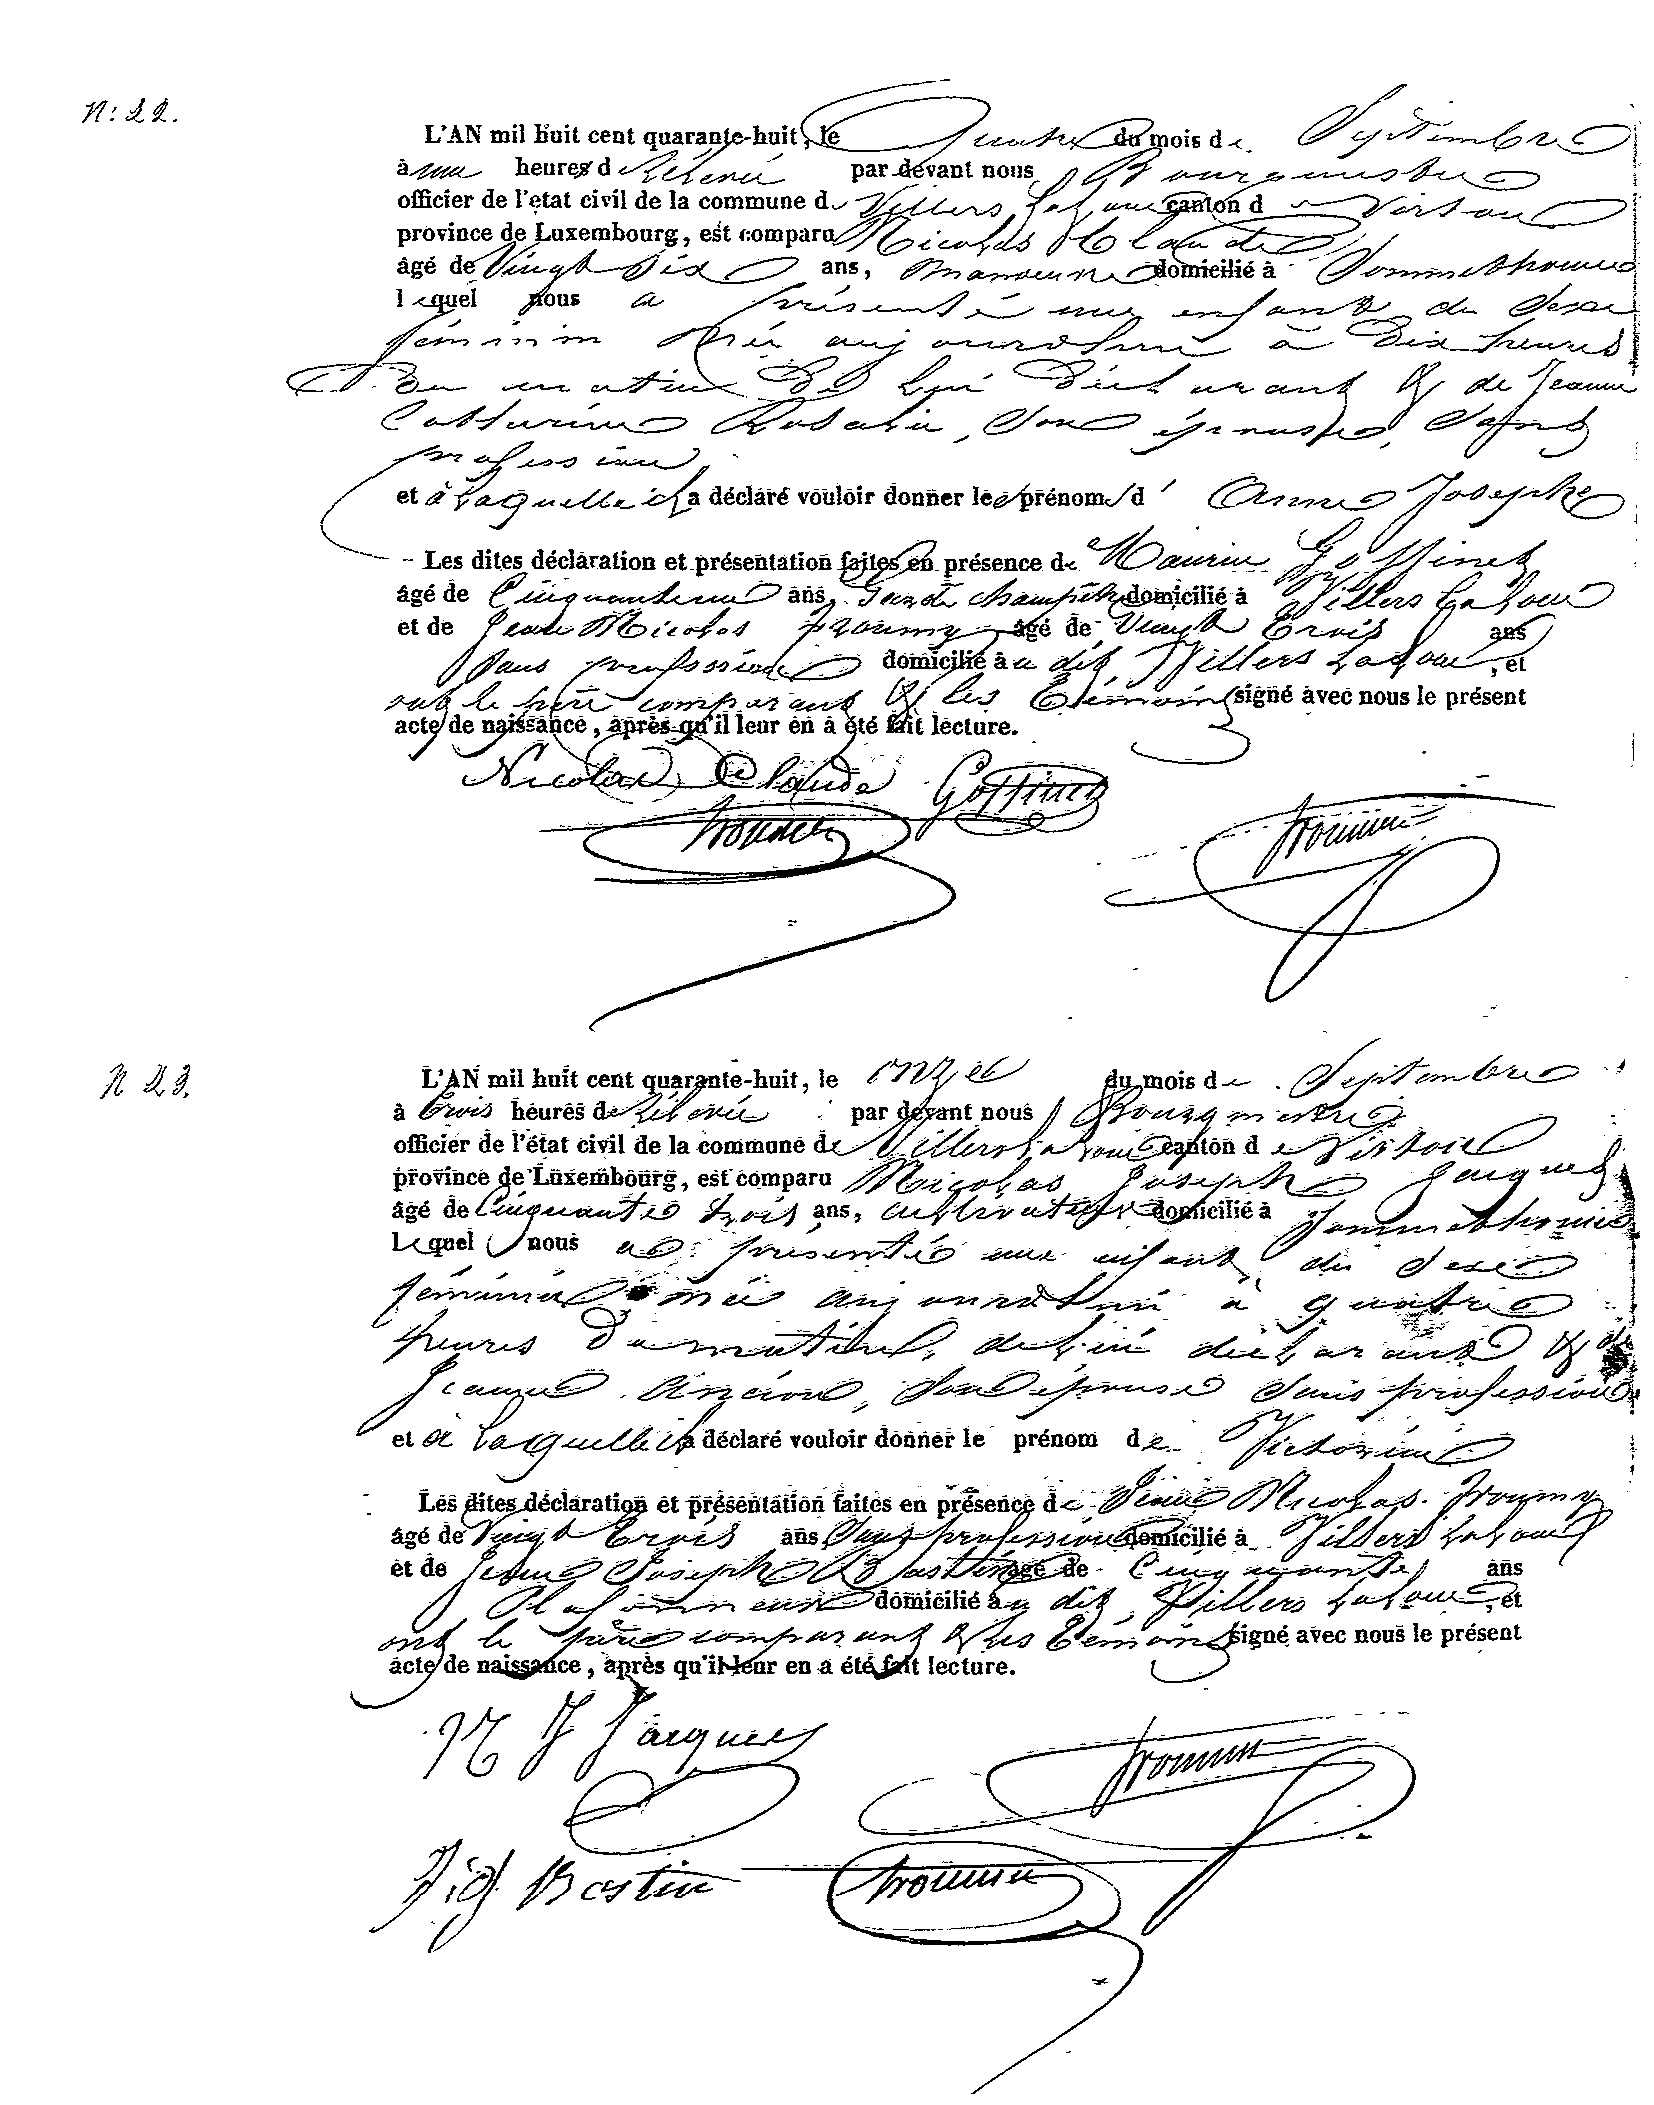 N: 22.
L'AN mil huit cent quarante-huit, le Quatre du mois de Septembre
à une heures d relevée par devant nous Bourgmestre
officier de l'état civil de la commune de Villers La Loue canton de Virton
province de Luxembourg, est comparu Nicolas Claude
âgé de Vingt Six ans, Manoeuvre domicilié à Sommethonne
lequel nous a présenté une enfant du sexe
féminin Née aujourd'hui à Dix heures
Du matin De lui Déclarant & de Jeanne
Catherine Rosalie, Son épouse, sans
profession.
et à laquelle il a déclaré vouloir donner les prénoms d' Anne Josephe
Les dites déclaration et présentation faites en présence de Maurice Goffinet
âgé de Cinquante un ans, Garde champêtre domicilié à Villers La Loue
et de Jean Nicolas Froumy âgé de Vingt Trois ans
sans profession domicilié à u dit Villers La Loue, et
ont le père comparant & les Témoins signé avec nous le présent
acte de naissance, après qu'il leur en a été fait lecture.
Nicolas Claude Goffinet
N 23.
L'AN mil huit cent quarante-huit, le onze du mois de Septembre
à trois heures de relevée par devant nous Bourgmestre
officier de l'état civil de la commune de Villers La Loue canton de Virton
province de Luxembourg, est comparu Nicolas Joseph Jacques
âgé de Cinquante trois ans, cultivateur domicilié à Sommethonne
Lequel nous a présenté une enfant du sexe
féminin née aujourd'hui à quatre
heures Du matin, de lui déclarant & de
Jeanne Ancion, Son épouse sans profession
et à laquelle il a déclaré vouloir donner le prénom de Victorine
Les dites déclaration et présentation faites en présence de Jean Nicolas Froumy
âgé de Vingt Trois ans Sans profession domicilié à Villers La Loue
et de Jean Joseph Bastin âgé de Cinquante ans
Plafonneur domicilié à u dit Villers La Loue, et
ont le père comparant & les Témoins signé avec nous le présent
acte de naissance, après qu'il leur en a été fait lecture.
N J Jacques
Bastin